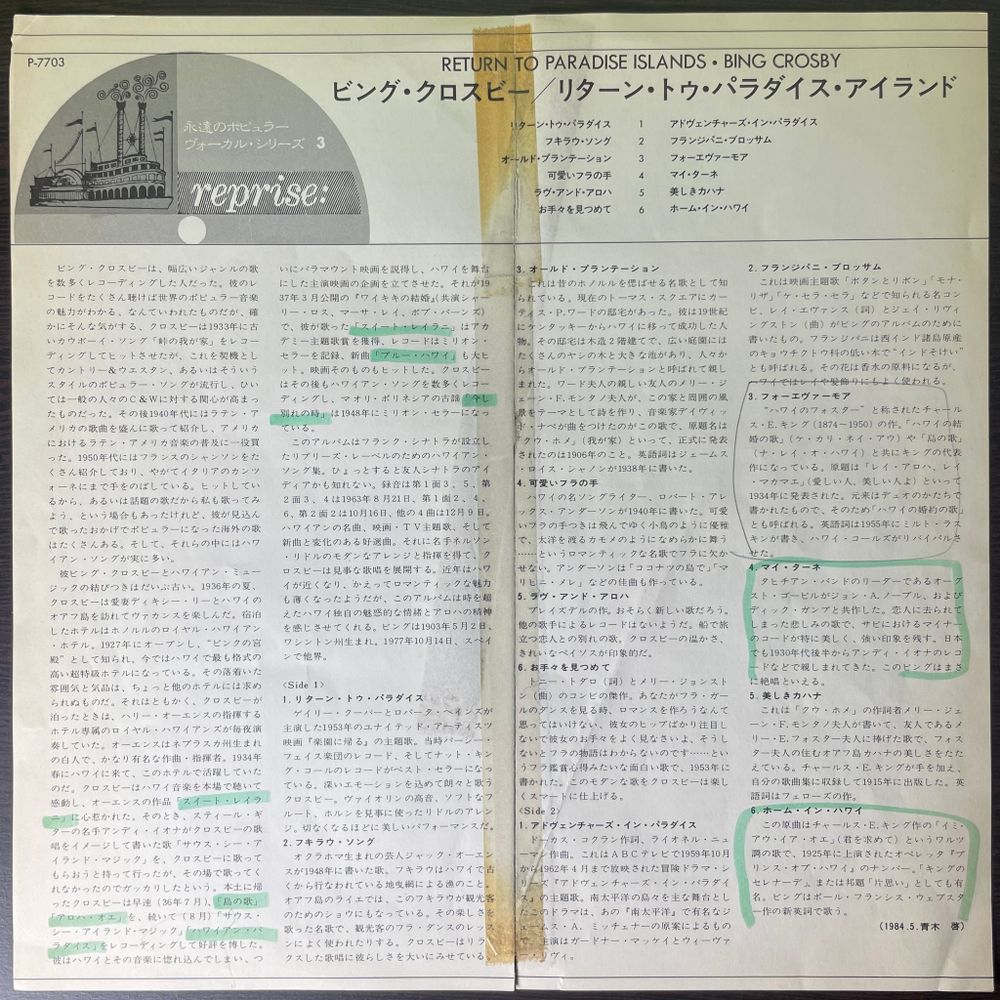 P-7703
RETURN TO PARADISE ISLANDS • BING CROSBY
ビング・クロスビー／リターン・トゥ・パラダイス・アイランド
永遠のポピュラー
ヴォーカル・シリーズ 3
reprise:
リターン・トゥ・パラダイス 1 アドヴェンチャーズ・イン・パラダイス
フキラウ・ソング 2 フランジパニ・ブロッサム
オールド・プランテーション 3 フォーエヴァーモア
可愛いフラの手 4 マイ・ターネ
ラヴ・アンド・アロハ 5 美しきカハナ
お手々を見つめて 6 ホーム・イン・ハワイ
ビング・クロスビーは、幅広いジャンルの歌
を数多くレコーディングした人だった。彼のレ
コードをたくさん聴けば世界のポピュラー音楽
の魅力がわかる、なんていわれたものだが、確
かにそんな気がする。クロスビーは1933年に古
いカウボーイ・ソング「峠の我が家」をレコー
ディングしてヒットさせたが、これを契機とし
てカントリー＆ウエスタン、あるいはそういう
スタイルのポピュラー・ソングが流行し、ひい
ては一般の人々のC＆Wに対する関心が高まっ
たものだった。その後1940年代にはラテン・ア
メリカの歌曲を盛んに歌って紹介し、アメリカ
におけるラテン・アメリカ音楽の普及に一役買
った。1950年代にはフランスのシャンソンをた
くさん紹介しており、やがてイタリアのカンツ
ォーネにまで手をのばしている。ヒットしてい
るから、あるいは話題の歌だから私も歌ってみ
よう、という場合もあったけれど、彼が見込ん
で歌ったおかげでポピュラーになった海外の歌
はたくさんある。そして、それらの中にはハワ
イアン・ソングが実に多い。
彼ビング・クロスビーとハワイアン・ミュー
ジックの結びつきはだいぶ古い。1936年の夏、
クロスビーは愛妻ディキシー・リーとハワイの
オアフ島を訪れてヴァカンスを楽しんだ。宿泊
したホテルはホノルルのロイヤル・ハワイアン
・ホテル。1927年にオープンし、“ピンクの宮
殿”として知られ、今ではハワイで最も格式の
高い超特級ホテルになっている。その落着いた
雰囲気と気品は、ちょっと他のホテルには求め
られぬものだ。それはともかく、クロスビーが
泊ったときは、ハリー・オーエンスの指揮する
ホテル専属のロイヤル・ハワイアンズが毎夜演
奏していた。オーエンスはネブラスカ州生まれ
の白人で、かなり有名な作曲・指揮者。1934年
春にハワイに来て、このホテルで活躍していた
のだ。クロスビーはハワイ音楽を本場で聴いて
感動し、オーエンスの作品「スイート・レイラ
ニ」に心惹かれた。そのとき、スティール・ギ
ターの名手アンディ・イオナがクロスビーの歌
唱をイメージして書いた歌「サウス・シー・ア
イランド・マジック」を、クロスビーに歌って
もらおうと持って行ったが、その場で歌ってく
れなかったのでガッカリしたという。本土に帰
ったクロスビーは早速（36年7月）、「島の歌」
「アロハ・オエ」を、続いて（8月）「サウス・
シー・アイランド・マジック」「ハワイアン・パ
ラダイス」をレコーディングして好評を博した。
彼はハワイとその音楽に惚れ込んでしまい、つ
いにパラマウント映画を説得し、ハワイを舞台
にした主演映画の企画を立てさせた。それが19
37年3月公開の『ワイキキの結婚』（共演シャー
リー・ロス、マーサ・レイ、ボブ・バーンズ）
で、彼が歌った「スイート・レイラニ」はアカ
デミー主題歌賞を獲得、レコードはミリオン・
セラーを記録、新曲「ブルー・ハワイ」も大ヒ
ット。映画そのものもヒットした。クロスビー
はその後もハワイアン・ソングを数多くレコー
ディングし、マオリ・ポリネシアの古謡「今し
別れの時」は1948年にミリオン・セラーになっ
ている。
このアルバムはフランク・シナトラが設立し
たリプリーズ・レーベルのためのハワイアン・
ソング集。ひょっとすると友人シナトラのアイ
ディアかも知れない。録音は第1面3、5、第
2面3、4は1963年8月21日、第1面2、4、
6、第2面2は10月16日、他の4曲は12月9日。
ハワイアンの名曲、映画・TV主題歌、そして
新曲と変化のある好選曲。それに名手ネルソン
・リドルのモダンなアレンジと指揮を得て、ク
ロスビーは見事な歌唱を展開する。近年はハワ
イが近くなり、かえってロマンティックな魅力
も薄くなったようだが、このアルバムは時を超
えたハワイ独自の魅惑的な情緒とアロハの精神
を感じさせてくれる。ビングは1903年5月2日、
ワシントン州生まれ。1977年10月14日、スペイ
ンで他界。
〈Side 1〉
1. リターン・トゥ・パラダイス
ゲイリー・クーパーとロバータ・ヘインズが
主演した1953年のユナイテッド・アーティスツ
映画『楽園に帰る』の主題歌。当時パーシー・
フェイス楽団のレコード、そしてナット・キン
グ・コールのレコードがベスト・セラーになっ
ている。深いエモーションを込めて朗々と歌う
クロスビー。ヴァイオリンの高音、ソフトなフ
ルート、ホルンを見事に使ったリドルのアレン
ジ。切なくなるほどに美しいパフォーマンスだ。
2. フキラウ・ソング
オクラホマ生まれの芸人ジャック・オーエン
スが1948年に書いた歌。フキラウはハワイで古
くから行なわれている地曳網による漁のこと。
オアフ島のライエでは、このフキラウが観光客
のためのショウにもなっている。その楽しさを
歌った名歌で、観光客のフラ・ダンスのレッス
ンによく使われたりする。クロスビーはリラッ
クスした歌唱に彼らしさを大いにみせている。
3. オールド・プランテーション
これは昔のホノルルを偲ばせる名歌として知
られている。現在のトーマス・スクエアにカー
ティス・P.ワードの邸宅があった。彼は19世紀
にケンタッキーからハワイに移って成功した人
物。その邸宅は木造2階建てで、広い庭園には
たくさんのヤシの木と大きな池があり、人々から
オールド・プランテーションと呼ばれて親し
まれた。ワード夫人の親しい友人のメリー・ジ
ェーン・F.モンタノ夫人が、この家と周囲の風
景をテーマとして詩を作り、音楽家デイヴィッ
ド・ナペが曲をつけたのがこの歌で、原題名は
「クウ・ホメ」（我が家）といって、正式に発表さ
れたのは1906年のこと。英語詞はジェームス
・ロイス・シャノンが1938年に書いた。
4. 可愛いフラの手
ハワイの名ソングライター、ロバート・アレ
ックス・アンダーソンが1940年に書いた。可愛
いフラの手つきは飛んでゆく小鳥のように優雅
で、太洋を渡るカモメのようになめらかに舞う
……というロマンティックな名歌でフラに欠かせ
ない。アンダーソンは「ココナツの島で」「マ
リヒニ・メレ」などの佳曲も作っている。
5. ラヴ・アンド・アロハ
ブレイズデルの作。おそらく新しい歌だろう。
他の歌手によるレコードはないようだ。船で旅
立つ恋人との別れの歌。クロスビーの温かさ、
きれいなペイソスが印象的だ。
6. お手々を見つめて
トニー・トダロ（詞）とメリー・ジョンスト
ン（曲）のコンビの傑作。あなたがフラ・ガー
ルのダンスを見る時、ロマンスを作ろうなんて
思ってはいけない、彼女のヒップばかり注目し
ないで彼女のお手々をよく見なさいよ、そうし
ないとフラの物語はわからないのです……とい
うフラ鑑賞心得みたいな面白い歌で、1953年に
書かれた。このモダンな歌をクロスビーは楽し
くスマートに仕上げる。
〈Side 2〉
1. アドヴェンチャーズ・イン・パラダイス
ドーカス・コクラン作詞、ライオネル・ニュ
ーマン作曲。これはABCテレビで1959年10月
から1962年4月まで放映された冒険ドラマ・シ
リーズ『アドヴェンチャーズ・イン・パラダイ
ス』の主題歌。南太平洋の島々を主な舞台とし
たこのドラマは、あの『南太平洋』で有名なジ
ェームス・A. ミッチェナーの原案によるもの
で、主演はガードナー・マッケイとウィーヴァ
ー・リヴィ。
2. フランジパニ・ブロッサム
これは映画主題歌「ボタンとリボン」「モナ・
リザ」「ケ・セラ・セラ」などで知られる名コン
ビ、レイ・エヴァンス（詞）とジェイ・リヴィ
ングストン（曲）がビングのアルバムのために
書いたもの。フランジパニは西インド諸島原産
のキョウチクトウ科の低い木で“インドそけい”
とも呼ばれる。その花は香水の原料になるが、
ハワイではレイや髪飾りにもよく使われる。
3. フォーエヴァーモア
“ハワイのフォスター”と称されたチャール
ス・E.キング（1874〜1950）の作。「ハワイの結
婚の歌」（ケ・カリ・ネイ・アウ）や「島の歌」
（ナ・レイ・オ・ハワイ）と共にキングの代表
作になっている。原題は「レイ・アロハ、レイ
・マカマエ」（愛しい人、美しい人よ）といって
1934年に発表された。元来はデュオのかたちで
書かれたもので、そのため「ハワイの婚約の歌」
とも呼ばれる。英語詞は1955年にミルト・ラス
キンが書き、ハワイ・コールズがリバイバルさ
せた。
4. マイ・ターネ
タヒチアン・バンドのリーダーであるオーグ
スト・グーピルがジョン・A.ノーブル、および
ディック・ガンプと共作した。恋人に去られて
しまった悲しみの歌で、サビにおけるマイナー
のコードが特に美しく、強い印象を残す。日本
でも1930年代後半からアンディ・イオナのレコ
ードなどで親しまれてきた。このビングはまさ
に絶唱といえる。
5. 美しきカハナ
これは「クウ・ホメ」の作詞者メリー・ジェ
ーン・F.モンタノ夫人が書いて、友人であるメ
リー・E.フォスター夫人に捧げた歌で、フォス
ター夫人の住むオアフ島カハナの美しさをたた
えている。チャールス・E.キングが手を加え、
自分の歌曲集に収録して1915年に出版した。英
語詞はフェローズの作。
6. ホーム・イン・ハワイ
この原曲はチャールス・E.キング作の「イミ・
アウ・イア・オエ」（君を求めて）というワルツ
調の歌で、1925年に上演されたオペレッタ『プ
リンス・オブ・ハワイ』のナンバー。「キングの
セレナーデ」または邦題「片思い」としても有
名。ビングはポール・フランシス・ウェブスタ
ー作の新英詞で歌う。
（1984.5. 青木 啓）